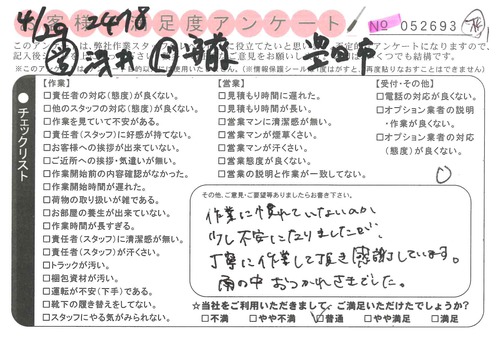 4/29 2478
お客様満足度アンケート
No 052693
このアンケートは、弊社作業スタッフ
※このアンケート
チェックリスト
【作業】
□責任者の対応(態度)が良くない。
□他のスタッフの対応(態度)が良くない。
□作業を見ていて不安がある。
□責任者(スタッフ)に好感が持てない。
□お客様への挨拶が出来ていない。
□ご近所への挨拶・気遣いが無い。
□作業開始前の内容確認がなかった。
□作業開始時間が遅れた。
□荷物の取り扱いが雑である。
□お部屋の養生が出来ていない。
□作業時間が長すぎる。
□責任者(スタッフ)に清潔感が無い。
□責任者(スタッフ)が汗くさい。
□トラックが汚い。
□梱包資材が汚い。
□運転が不安(下手)である。
□靴下の履き替えをしてない。
□スタッフにやる気がみられない。
【営業】
□見積もり時間に遅れた。
□見積もり時間が長い。
□営業マンに清潔感が無い。
□営業マンが煙草くさい。
□営業マンが汗くさい。
□営業態度が良くない。
□営業の説明と作業が一致してない。
【受付・その他】
□電話の対応が良くない。
□オプション業者の説明
・作業が良くない。
□オプション業者の対応
(態度)が良くない。
その他、ご意見・ご要望等ありましたらお書き下さい。
作業に慣れていないのか
少し不安になりましたが、
丁寧に作業して頂き感謝しています。
雨の中おつかれさまでした。
☆当社をご利用いただきまして、ご満足いただけたでしょうか?
□不満 □やや不満 □普通 □やや満足 □満足